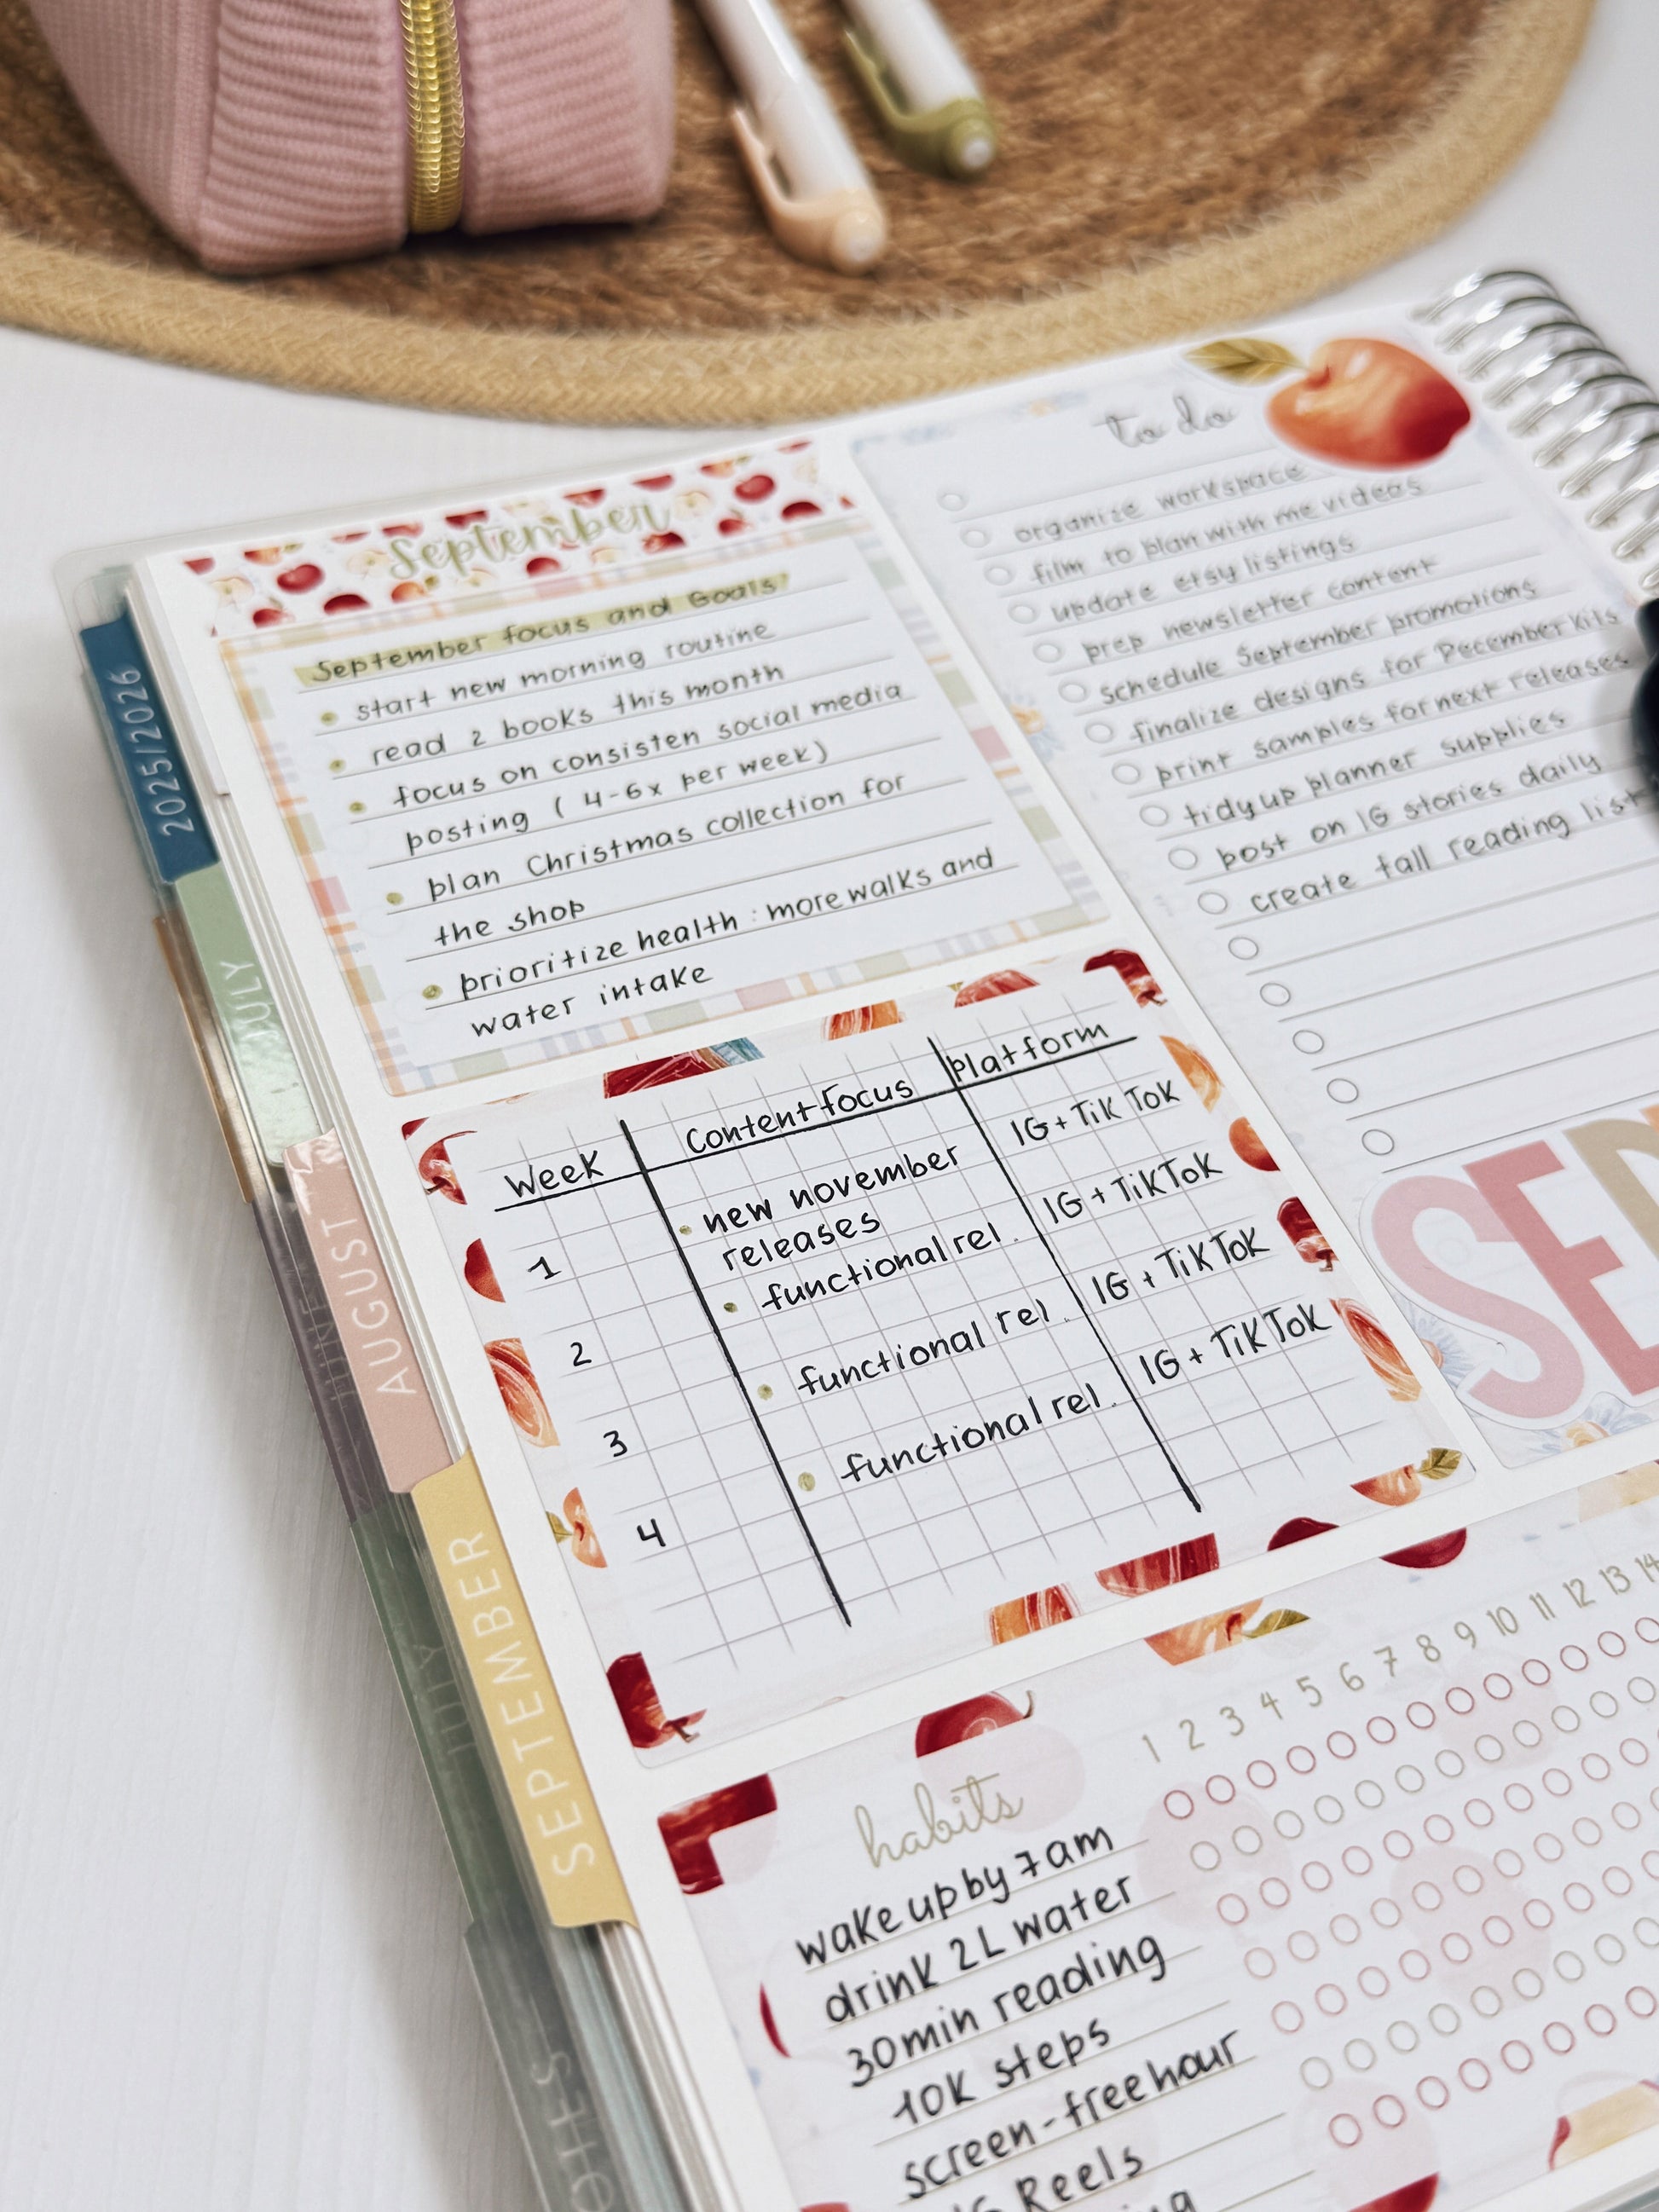 September
September focus and Goals:
start new morning routine
read 2 books this month
focus on consisten social media
posting (4-6x per week)
plan Christmas collection for
the shop
prioritize health: more walks and
water intake
to do
organize workspace
film to plan with me videos
update etsy listings
prep newsletter content
schedule September promotions
finalize designs for December kits
print samples for next releases
tidy up planner supplies
post on IG stories daily
create fall reading list
Week Content focus Platform
1 new november IG + TikTok
releases
functional rel.
2 functional rel. IG + TikTok
3 functional rel. IG + TikTok
4 IG + TikTok
SEP
habits 1 2 3 4 5 6 7 8 9 10 11 12 13 14
wake up by 7am
drink 2L water
30min reading
10K steps
screen-free hour
Reels
2025/2026
JULY
JUNE
AUGUST
SEPTEMBER
JULY